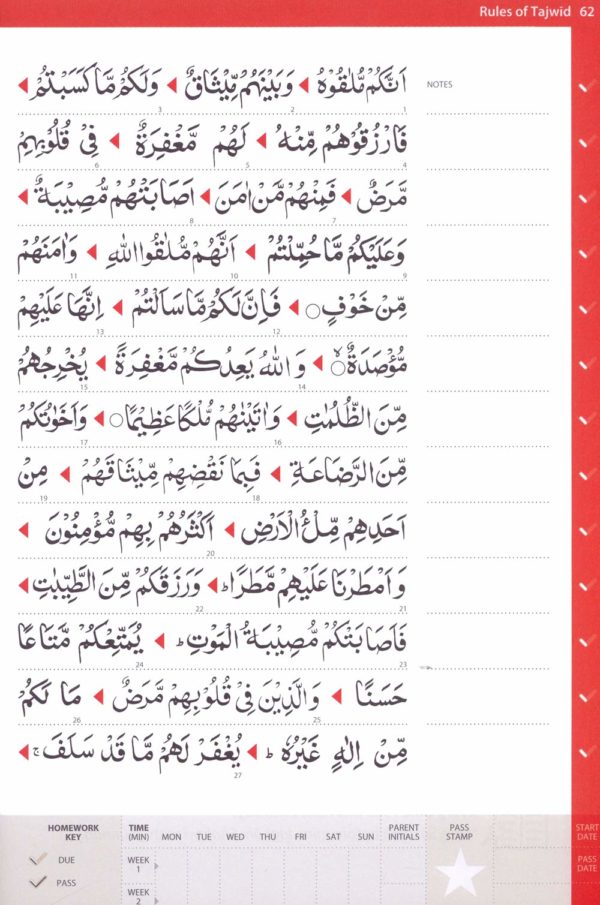 Rules of Tajwid 62
NOTES
اَنَّكُمْ مُّلٰقُوْهُ ◀ وَ بَيْنَهُمْ مِّيْثَاقٌ ◀ وَلَكُمْ مَّا كَسَبْتُمْ ◀
1 2 3
فَارْزُقُوْهُمْ مِّنْهُ ◀ لَهُمْ مَّغْفِرَةٌ ◀ فِيْ قُلُوْبِهِمْ
4 5 6
مَّرَضٌ ◀ فَمِنْهُمْ مَّنْ اٰمَنَ ◀ اَصَابَتْهُمْ مُّصِيْبَةٌ ◀
7 8
وَعَلَيْكُمْ مَّا حُمِّلْتُمْ ◀ اَنَّهُمْ مُّلٰقُوا اللهِ ◀ وَاٰمَنَهُمْ
9 10 11
مِّنْ خَوْفٍ ○ ◀ فَاِنَّ لَكُمْ مَّا سَاَلْتُمْ ◀ اِنَّهَا عَلَيْهِمْ
12 13
مُّؤْصَدَةٌ ○ۙ ◀ وَ اللهُ يَعِدُكُمْ مَّغْفِرَةً ◀ يُخْرِجُهُمْ
14 15
مِّنَ الظُّلُمٰتِ ◀ وَاٰتَيْنٰهُمْ مُّلْكًا عَظِيْمًا ○ ◀ وَاَخَوٰتُكُمْ
16 17
مِّنَ الرَّضَاعَةِ ◀ فَبِمَا نَقْضِهِمْ مِّيْثَاقَهُمْ ◀ مِنْ
18 19
اَحَدِهِمْ مِّلْءُ الْاَرْضِ ◀ اَكْثَرُهُمْ بِهِمْ مُّؤْمِنُوْنَ ◀
20
وَ اَمْطَرْنَا عَلَيْهِمْ مَّطَرًا ؕ ◀ وَرَزَقَكُمْ مِّنَ الطَّيِّبٰتِ ◀
21 22
فَاَصَابَتْكُمْ مُّصِيْبَةُ الْمَوْتِ ؕ ◀ يُمَتِّعْكُمْ مَّتَاعًا
23 24
حَسَنًا ◀ وَالَّذِيْنَ فِيْ قُلُوْبِهِمْ مَّرَضٌ ◀ مَا لَكُمْ
25 26
مِّنْ اِلٰهٍ غَيْرُهٗ ؕ ◀ يُغْفَرْ لَهُمْ مَّا قَدْ سَلَفَ ۚ ◀
27
HOMEWORK KEY
DUE
PASS
TIME (MIN) MON TUE WED THU FRI SAT SUN PARENT INITIALS PASS STAMP START DATE
WEEK 1
PASS DATE
WEEK 2